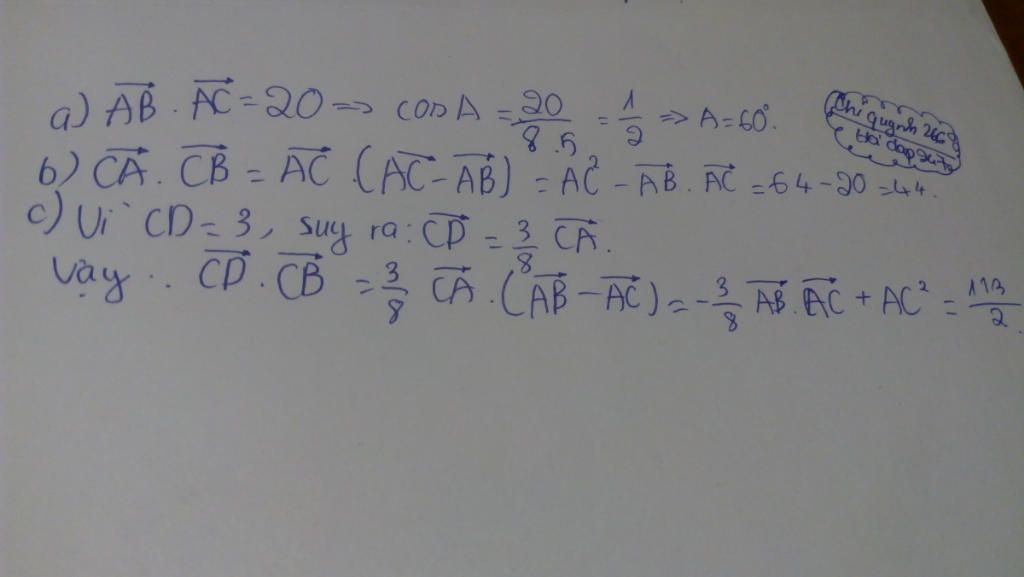 a) $\overrightarrow{AB} \cdot \overrightarrow{AC} = 20 \Rightarrow \cos A = \frac{20}{8.5} = \frac{1}{2} \Rightarrow A = 60°.$
Chị quỳnh 266
Hỏi đáp 247
b) $\overrightarrow{CA} \cdot \overrightarrow{CB} = \overrightarrow{AC} \cdot (\overrightarrow{AC} - \overrightarrow{AB}) = AC^2 - \overrightarrow{AB} \cdot \overrightarrow{AC} = 64 - 20 = 44.$
c) Vì CD = 3, suy ra: $\overrightarrow{CD} = \frac{3}{8} \overrightarrow{CA}.$
Vậy $\overrightarrow{CD} \cdot \overrightarrow{CB} = \frac{3}{8} \overrightarrow{CA} \cdot (\overrightarrow{AB} - \overrightarrow{AC}) = -\frac{3}{8} \overrightarrow{AB} \cdot \overrightarrow{AC} + AC^2 = \frac{113}{2}.$